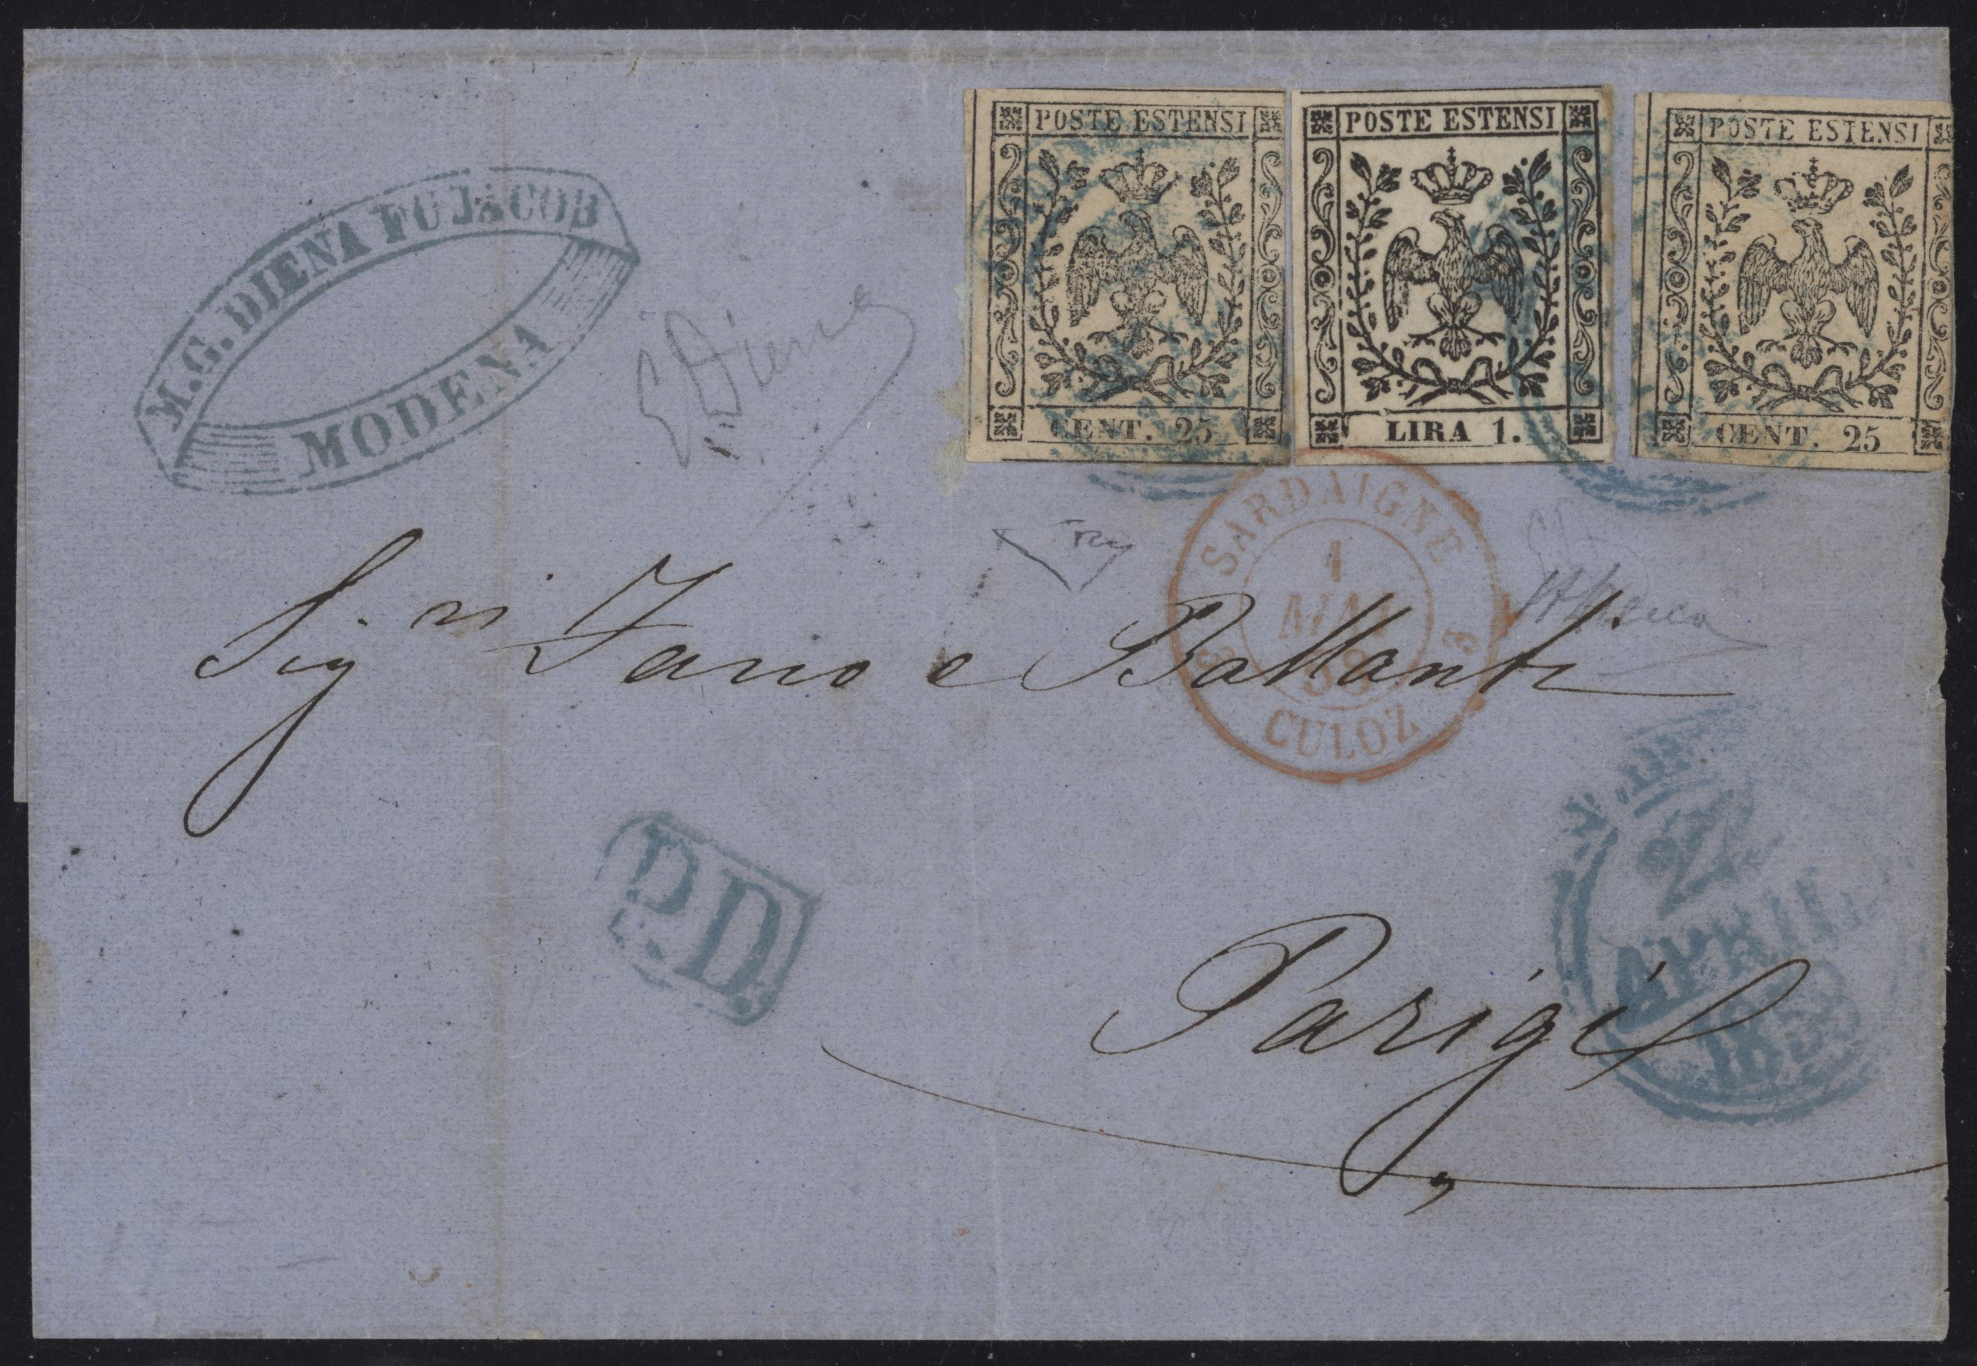 POSTE ESTENSI
CENT. 25
POSTE ESTENSI
LIRA 1.
POSTE ESTENSI
CENT. 25
M. G. DIENA FU JACOB
MODENA
EDiena
SARDAIGNE
1
MAI
58
3 3
CULOZ
Sig.ri
P.D.
APRILE
1858
Parigi